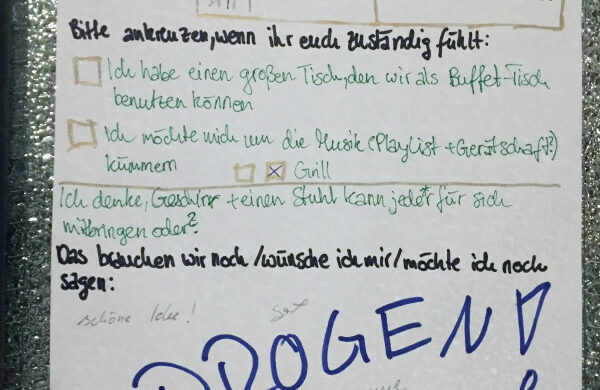 Bitte ankreuzen, wenn ihr euch zuständig fühlt:
Ich habe einen großen Tisch, den wir als Buffet-Tisch
benutzen können
Ich möchte mich um die Musik (Playlist + Gerätschaft?)
kümmern
Grill
Ich denke, Geschirr + einen Stuhl kann jede*r für sich
mitbringen oder?
Das brauchen wir noch / wünsche ich mir / möchte ich noch
sagen:
schöne Idee!
DROGEN!